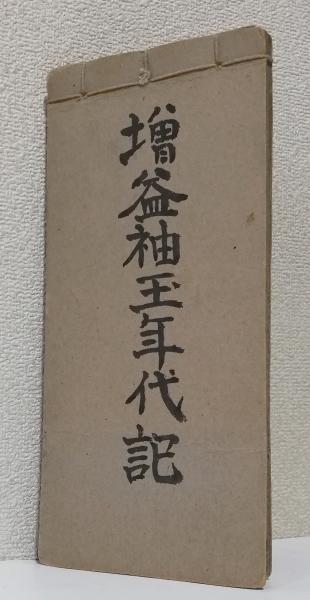 増益袖玉年代記